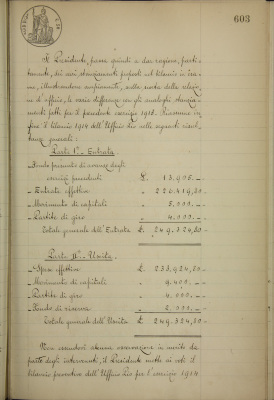 603
Il Presidente, passa quindi a dar ragione, parti-
tamente, dei vari stanziamenti proposti nel bilancio in esa-
me, illustrandone ampiamente, sulla scorta della relazio-
ne d'ufficio, le varie differenze con gli analoghi stanzia-
menti fatti per il precedente esercizio 1913. Riassume in-
fine il bilancio 1914 dell'Ufficio nelle seguenti risul-
tanze generali:
Parte Iª Entrata
Fondo presunto di avanzo degli
esercizi precedenti £. 13,905.-
- Entrate effettive " 226.419,30-
- Movimento di capitali " 5.000.-
- Partite di giro " 4.000.-
Totale generale dell'Entrata £. 249.324,30-
Parte IIª Uscita
- Spese effettive £. 233.924,30-
- Movimento di capitali " 9.400.-
- Partite di giro " 4.000.-
- Fondo di riserva " 2.000.-
Totale generale dell'Uscita £. 249.324,30-
Non essendovi alcuna osservazione in merito da
parte degli intervenuti, il Presidente mette ai voti il
bilancio preventivo dell'Ufficio per l'esercizio 1914